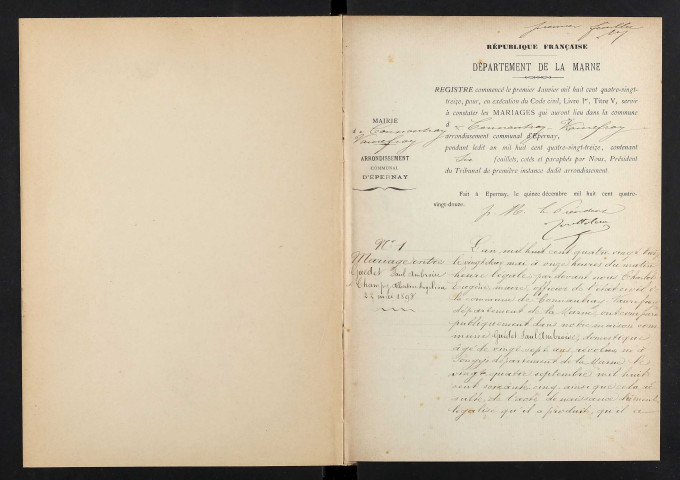 premier feuillet
RÉPUBLIQUE FRANÇAISE
DÉPARTEMENT DE LA MARNE
REGISTRE commencé le premier Janvier mil huit cent quatre-vingt-
treize, pour, en exécution du Code civil, Livre Ier, Titre V, servir
à constater les MARIAGES qui auront lieu dans la commune
d Connantray-Vaurefroy
arrondissement communal d'Épernay,
pendant ledit an mil huit cent quatre-vingt-treize, contenant
Six feuillets, cotés et paraphés par Nous, Président
du Tribunal de première instance dudit arrondissement
Fait à Epernay, le quinze décembre mil huit cent quatre-
vingt-douze.
p. M. le Président
MAIRIE
de Connantray
Vaurefroy
ARRONDISSEMENT
COMMUNAL
D'ÉPERNAY
N° 1
Mariage entre
Guédet Paul Ambroise
&
L'an mil huit cent quatre vingt treize
le vingt mai à onze heures du matin
heure légale par devant nous
Eugène maire, officier de l'état civil de
la commune de Connantray Vaurefroy
département de la Marne, ont comparu
publiquement dans notre maison com
mune Guédet Paul Ambroise, domestique
âgé de vingt sept ans révolus né à
département de la Marne le
vingt quatre septembre mil huit
cent soixante cinq ainsi que cela ré
sulte de l'acte de naissance dûment
légalisé qu'il a produit, qu'il a